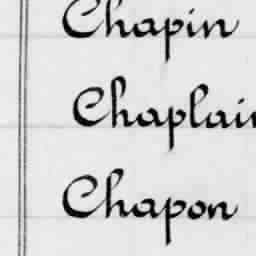 Chapin
Chaplain
Chapon